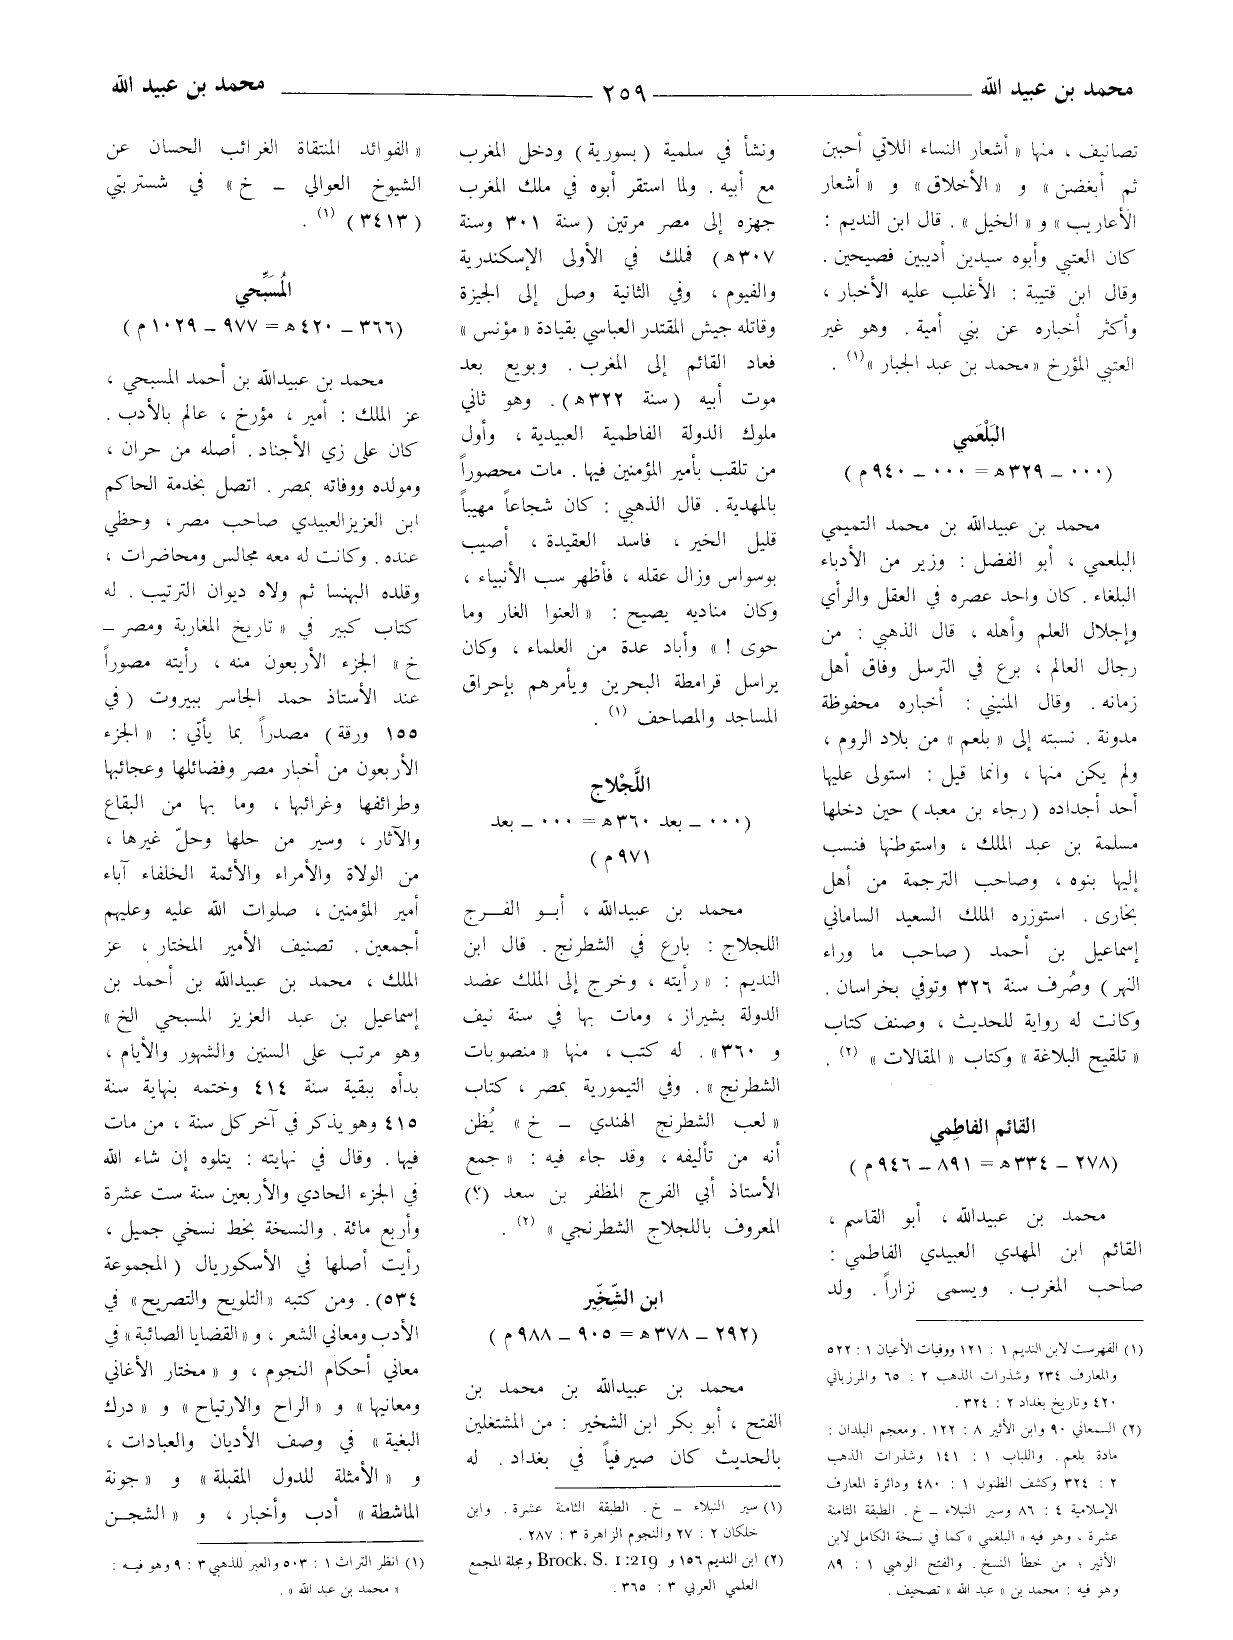 محمد بن عبيد الله ٢٥٩ محمد بن عبيد الله
تصانيف ، منها « أشعار النساء اللاتي أحببن
ثم أبغضن » و « الأخلاق » و « أشعار
الأعاريب » و « الخيل » . قال ابن النديم :
كان العتبي وأبوه سيدين أديبين فصيحين .
وقال ابن قتيبة : الأغلب عليه الأخبار ،
وأكثر أخباره عن بني أمية . وهو غير
العتبي المؤرخ «محمد بن عبد الجبار »(١) .
البَلْعَمي
(٠٠٠ ــ ٣٢٩هـ = ٠٠٠ ــ ٩٤٠ م )
محمد بن عبيدالله بن محمد التميمي
البلعمي ، أبو الفضل : وزير من الأدباء
البلغاء . كان واحد عصره في العقل والرأي
وإجلال العلم وأهله ، قال الذهبي : من
رجال العالم ، برع في الترسل وفاق أهل
زمانه . وقال المنيني : أخباره محفوظة
مدونة . نسبته إلى « بلعم » من بلاد الروم ،
ولم يكن منها ، وانما قيل : استولى عليها
أحد أجداده ( رجاء بن معبد ) حين دخلها
مسلمة بن عبد الملك ، واستوطنها فنسب
إليها بنوه ، وصاحب الترجمة من أهل
بخارى . استوزره الملك السعيد الساماني
إسماعيل بن أحمد ( صاحب ما وراء
النهر ) وصُرف سنة ٣٢٦ وتوفي بخراسان .
وكانت له رواية للحديث ، وصنف كتاب
« تلقيح البلاغة » وكتاب « المقالات » (٢) .
القائم الفاطِمي
(٢٧٨ ــ ٣٣٤هـ = ٨٩١ ــ ٩٤٦ م )
محمد بن عبيدالله ، أبو القاسم ،
القائم ابن المهدي العبيدي الفاطمي :
صاحب المغرب . ويسمى نزاراً . ولد
(١) الفهرست لابن النديم ١ : ١٢١ ووفيات الأعيان ١ : ٥٢٢
والمعارف ٢٣٤ وشذرات الذهب ٢ : ٦٥ والمرزباني
٤٢٠ وتاريخ بغداد ٢ : ٣٢٤ .
(٢) السمعاني ٩٠ وابن الأثير ٨ : ١٢٢ . ومعجم البلدان :
مادة بلعم . واللباب ١ : ١٤١ وشذرات الذهب
٢ : ٣٢٤ وكشف الظنون ١ : ٤٨٠ ودائرة المعارف
الإسلامية ٤ : ٨٦ وسير النبلاء ــ خ . الطبقة الثامنة
عشرة ، وهو فيه « البلغمي » كما في نسخة الكامل لابن
الأثير ؛ من خطأ النسخ . والفتح الوهبي ١ : ٨٩
وهو فيه : محمد بن « عبد الله » تصحيف .
ونشأ في سلمية ( بسورية ) ودخل المغرب
مع أبيه . ولما استقر أبوه في ملك المغرب
جهزه إلى مصر مرتين ( سنة ٣٠١ وسنة
٣٠٧هـ ) فملك في الأولى الإسكندرية
والفيوم ، وفي الثانية وصل إلى الجيزة
وقاتله جيش المقتدر العباسي بقيادة « مؤنس »
فعاد القائم إلى المغرب . وبويع بعد
موت أبيه ( سنة ٣٢٢هـ ) . وهو ثاني
ملوك الدولة الفاطمية العبيدية ، وأول
من تلقب بأمير المؤمنين فيها . مات محصوراً
بالمهدية . قال الذهبي : كان شجاعاً مهيباً
قليل الخير ، فاسد العقيدة ، أصيب
بوسواس وزال عقله ، فأظهر سب الأنبياء ،
وكان مناديه يصيح : « العنوا الغار وما
حوى ! » وأباد عدة من العلماء ، وكان
يراسل قرامطة البحرين ويأمرهم بإحراق
المساجد والمصاحف (١) .
اللَّجْلاج
(٠٠٠ ــ بعد ٣٦٠هـ = ٠٠٠ ــ بعد
٩٧١ م )
محمد بن عبيدالله ، أبو الفرج
اللجلاج : بارع في الشطرنج . قال ابن
النديم : « رأيته ، وخرج إلى الملك عضد
الدولة بشيراز ، ومات بها في سنة نيف
و ٣٦٠ » . له كتب ، منها « منصوبات
الشطرنج » . وفي التيمورية بمصر ، كتاب
« لعب الشطرنج الهندي ــ خ » يُظن
أنه من تأليفه ، وقد جاء فيه : « جمع
الأستاذ أبي الفرج المظفر بن سعد (؟)
المعروف باللجلاج الشطرنجي » (٢) .
ابن الشّخِّير
(٢٩٢ ــ ٣٧٨هـ = ٩٠٥ ــ ٩٨٨ م )
محمد بن عبيدالله بن محمد بن
الفتح ، أبو بكر ابن الشخير : من المشتغلين
بالحديث كان صيرفياً في بغداد . له
(١) سير النبلاء ــ خ . الطبقة الثامنة عشرة . وابن
خلكان ٢ : ٢٧ والنجوم الزاهرة ٣ : ٢٨٧ .
(٢) ابن النديم ١٥٦ و Brock. S. 1:219 ومجلة المجمع
العلمي العربي ٣ : ٣٦٥ .
« الفوائد المنتقاة الغرائب الحسان عن
الشيوخ العوالي ــ خ » في شستربتي
( ٣٤١٣ ) (١) .
المُسَبِّحي
(٣٦٦ ــ ٤٢٠هـ = ٩٧٧ ــ ١٠٢٩ م )
محمد بن عبيدالله بن أحمد المسبحي ،
عز الملك : أمير ، مؤرخ ، عالم بالأدب .
كان على زي الأجناد . أصله من حران ،
ومولده ووفاته بمصر . اتصل بخدمة الحاكم
ابن العزيز العبيدي صاحب مصر ، وحظي
عنده . وكانت له معه مجالس ومحاضرات ،
وقلده البهنسا ثم ولاه ديوان الترتيب . له
كتاب كبير في « تاريخ المغاربة ومصر ــ
خ » الجزء الأربعون منه ، رأيته مصوراً
عند الأستاذ حمد الجاسر ببيروت ( في
١٥٥ ورقة ) مصدراً بما يأتي : « الجزء
الأربعون من أخبار مصر وفضائلها وعجائبها
وطرائفها وغرائبها ، وما بها من البقاع
والآثار ، وسير من حلها وحلّ غيرها ،
من الولاة والأمراء والأئمة الخلفاء آباء
أمير المؤمنين ، صلوات الله عليه وعليهم
أجمعين . تصنيف الأمير المختار ، عز
الملك ، محمد بن عبيدالله بن أحمد بن
إسماعيل بن عبد العزيز المسبحي الخ »
وهو مرتب على السنين والشهور والأيام ،
بدأه ببقية سنة ٤١٤ وختمه بنهاية سنة
٤١٥ وهو يذكر في آخر كل سنة ، من مات
فيها . وقال في نهايته : يتلوه إن شاء الله
في الجزء الحادي والأربعين سنة ست عشرة
وأربع مائة . والنسخة بخط نسخي جميل ،
رأيت أصلها في الأسكوريال ( المجموعة
٥٣٤) . ومن كتبه « التلويح والتصريح » في
الأدب ومعاني الشعر ، و « القضايا الصائبة » في
معاني أحكام النجوم ، و « مختار الأغاني
ومعانيها » و « الراح والارتياح » و « درك
البغية » في وصف الأديان والعبادات ،
و « الأمثلة للدول المقبلة » و « جونة
الماشطة » أدب وأخبار ، و « الشجن
(١) انظر التراث ١ : ٥٠٣ والعبر للذهبي ٣ : ٩ وهو فيه :
« محمد بن عبد الله » .